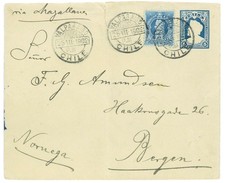 via Magallanes
VALPARAISO
CHILE
CHILE
Señor
F. G. Amundsen
Haakonsgade 26.
Noruega
Bergen.